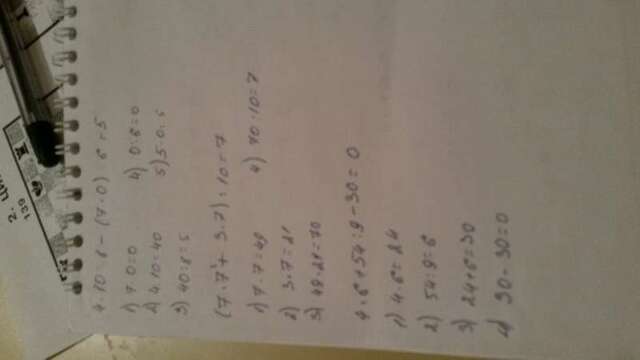 4·10:8-(7·0):8=5
1) 7·0=0
2) 4·10=40
3) 40:8=5
4) 0:8=0
5) 5-0=5
(7·7+3·7):10=7
1) 7·7=49
2) 3·7=21
3) 49+21=70
4) 70:10=7
4·6+54:9-30=0
1) 4·6=24
2) 54:9=6
3) 24+6=30
4) 30-30=0
2.
139